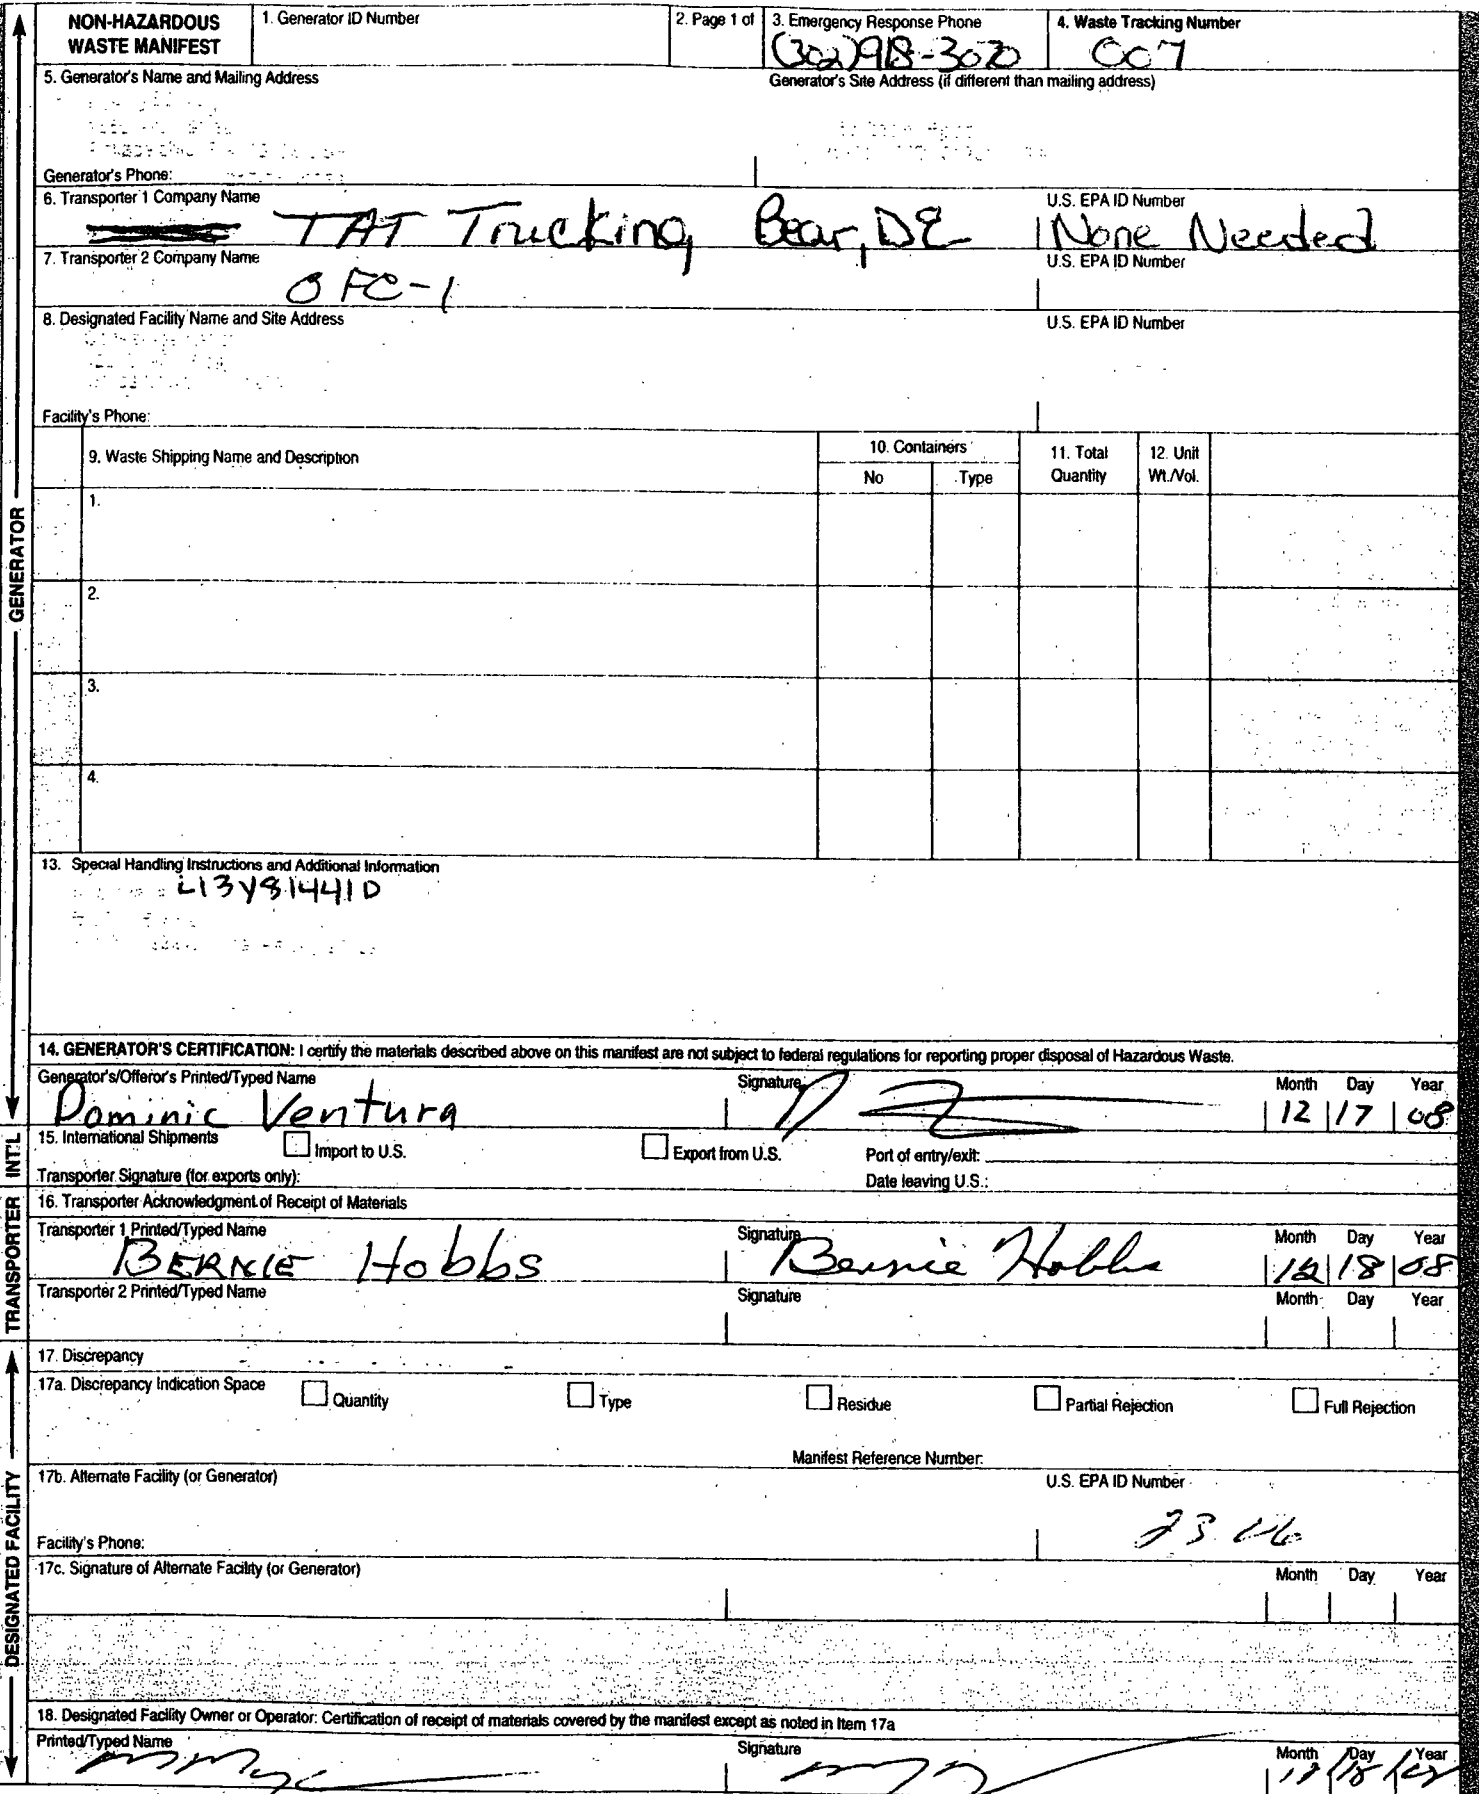 NON-HAZARDOUS WASTE MANIFEST
1. Generator ID Number
2. Page 1 of
3. Emergency Response Phone
(302)918-3070
4. Waste Tracking Number
007
5. Generator's Name and Mailing Address
Generator's Site Address (if different than mailing address)
Generator's Phone:
6. Transporter 1 Company Name
U.S. EPA ID Number
TAT Trucking, Bear, DE
None Needed
7. Transporter 2 Company Name
U.S. EPA ID Number
OFC-1
8. Designated Facility Name and Site Address
U.S. EPA ID Number
Facility's Phone:
9. Waste Shipping Name and Description
10. Containers
No
Type
11. Total Quantity
12. Unit Wt./Vol.
1.
2.
3.
4.
13. Special Handling Instructions and Additional Information
L13Y81441D
14. GENERATOR'S CERTIFICATION: I certify the materials described above on this manifest are not subject to federal regulations for reporting proper disposal of Hazardous Waste.
Generator's/Offeror's Printed/Typed Name
Signature
Month Day Year
Dominic Ventura
12 17 08
15. International Shipments
Import to U.S.
Export from U.S.
Port of entry/exit:
Transporter Signature (for exports only):
Date leaving U.S.:
16. Transporter Acknowledgment of Receipt of Materials
Transporter 1 Printed/Typed Name
Signature
Month Day Year
BERNIE Hobbs
Bernie Hobbs
12 18 08
Transporter 2 Printed/Typed Name
Signature
Month Day Year
17. Discrepancy
17a. Discrepancy Indication Space
Quantity
Type
Residue
Partial Rejection
Full Rejection
Manifest Reference Number:
17b. Alternate Facility (or Generator)
U.S. EPA ID Number
Facility's Phone:
17c. Signature of Alternate Facility (or Generator)
Month Day Year
18. Designated Facility Owner or Operator: Certification of receipt of materials covered by the manifest except as noted in Item 17a
Printed/Typed Name
Signature
Month Day Year
GENERATOR
INT'L
TRANSPORTER
DESIGNATED FACILITY